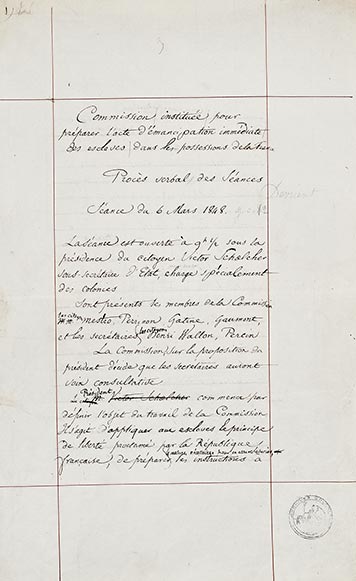 Commission instituée pour
préparer l'acte d'émancipation immédiate
des esclaves, dans les possessions de la
Procès verbal des Séances
Séance du 6 Mars 1848.
La Séance est ouverte à 9h ½ sous la
présidence du citoyen Victor Schœlcher
sous-secrétaire d'Etat, chargé spécialement
des colonies
Sont présents les membres de la Commission
les citoyens
Mestro, Perrinon, Gatine, Gaumont,
et les secrétaires, les citoyens Henri Wallon, Percin
La Commission, sur la proposition du
président décide que les secrétaires auront
voix consultative
Le Président
Victor Schœlcher commence par
définir l'objet du travail de la Commission
Il s'agit d'appliquer aux esclaves le principe
de liberté proclamé par la République
française, de préparer les instructions